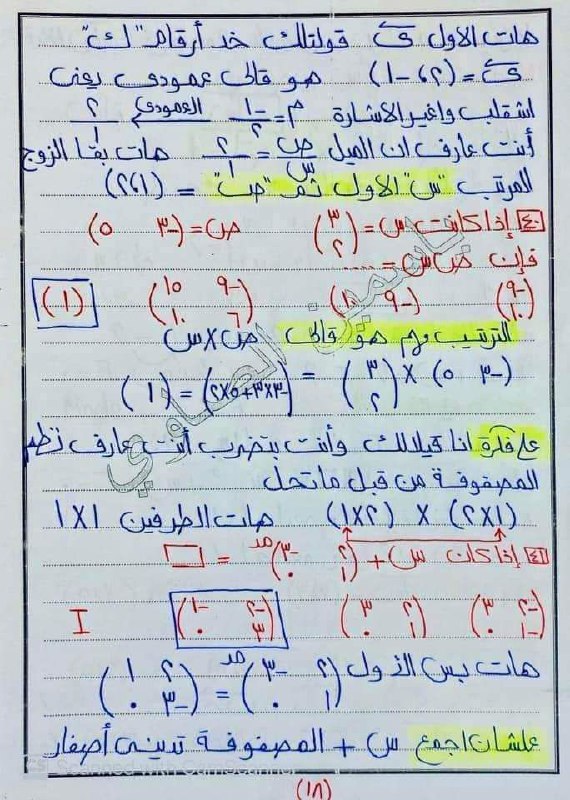 هات الاول قَ قولتلك خد أرقام "ك"
قَ = (٢، -١) هو قالي عمودي يعني
اشقلب واغير الاشارة م = -١/٢ العمودي ٢/١
أنت عارف ان الميل ص/س = ٢/١ هات بقا الزوج
المرتب "س" الاول ثم "ص" = (١، ٢)
٤٠ إذا كانت س = (٣ ٢) ص = (-٣ ٥)
فإن ص س = ....
(-٩ ١٠) (-٩ ١٠) (-٩ ١٠ ٦ ١٠) (١)
الترتيب مهم هو قالي ص × س
(-٣ ٥) × (٣ ٢) = (-٣×٣+٥×٢) = (١)
على فكرة انا قيلالك وأنت بتضرب أنت عارف نظم
المصفوفة من قبل ما تحل
(١×٢) × (٢×١) هات الطرفين ١×١
٤١ إذا كان س + (٢ -٣ ١ ٠)مد = □
(-٢ ٣ -١ ٠) (٢ ٣ ١ ٠) (-٢ -١ ٣ ٠) I
هات بس الأول (٢ -٣ ١ ٠)مد = (٢ ١ -٣ ٠)
علشان اجمع س + المصفوفة تديني أصفار
ياسمين الصاوي
CS Scanned with CamScanner
(١٨)